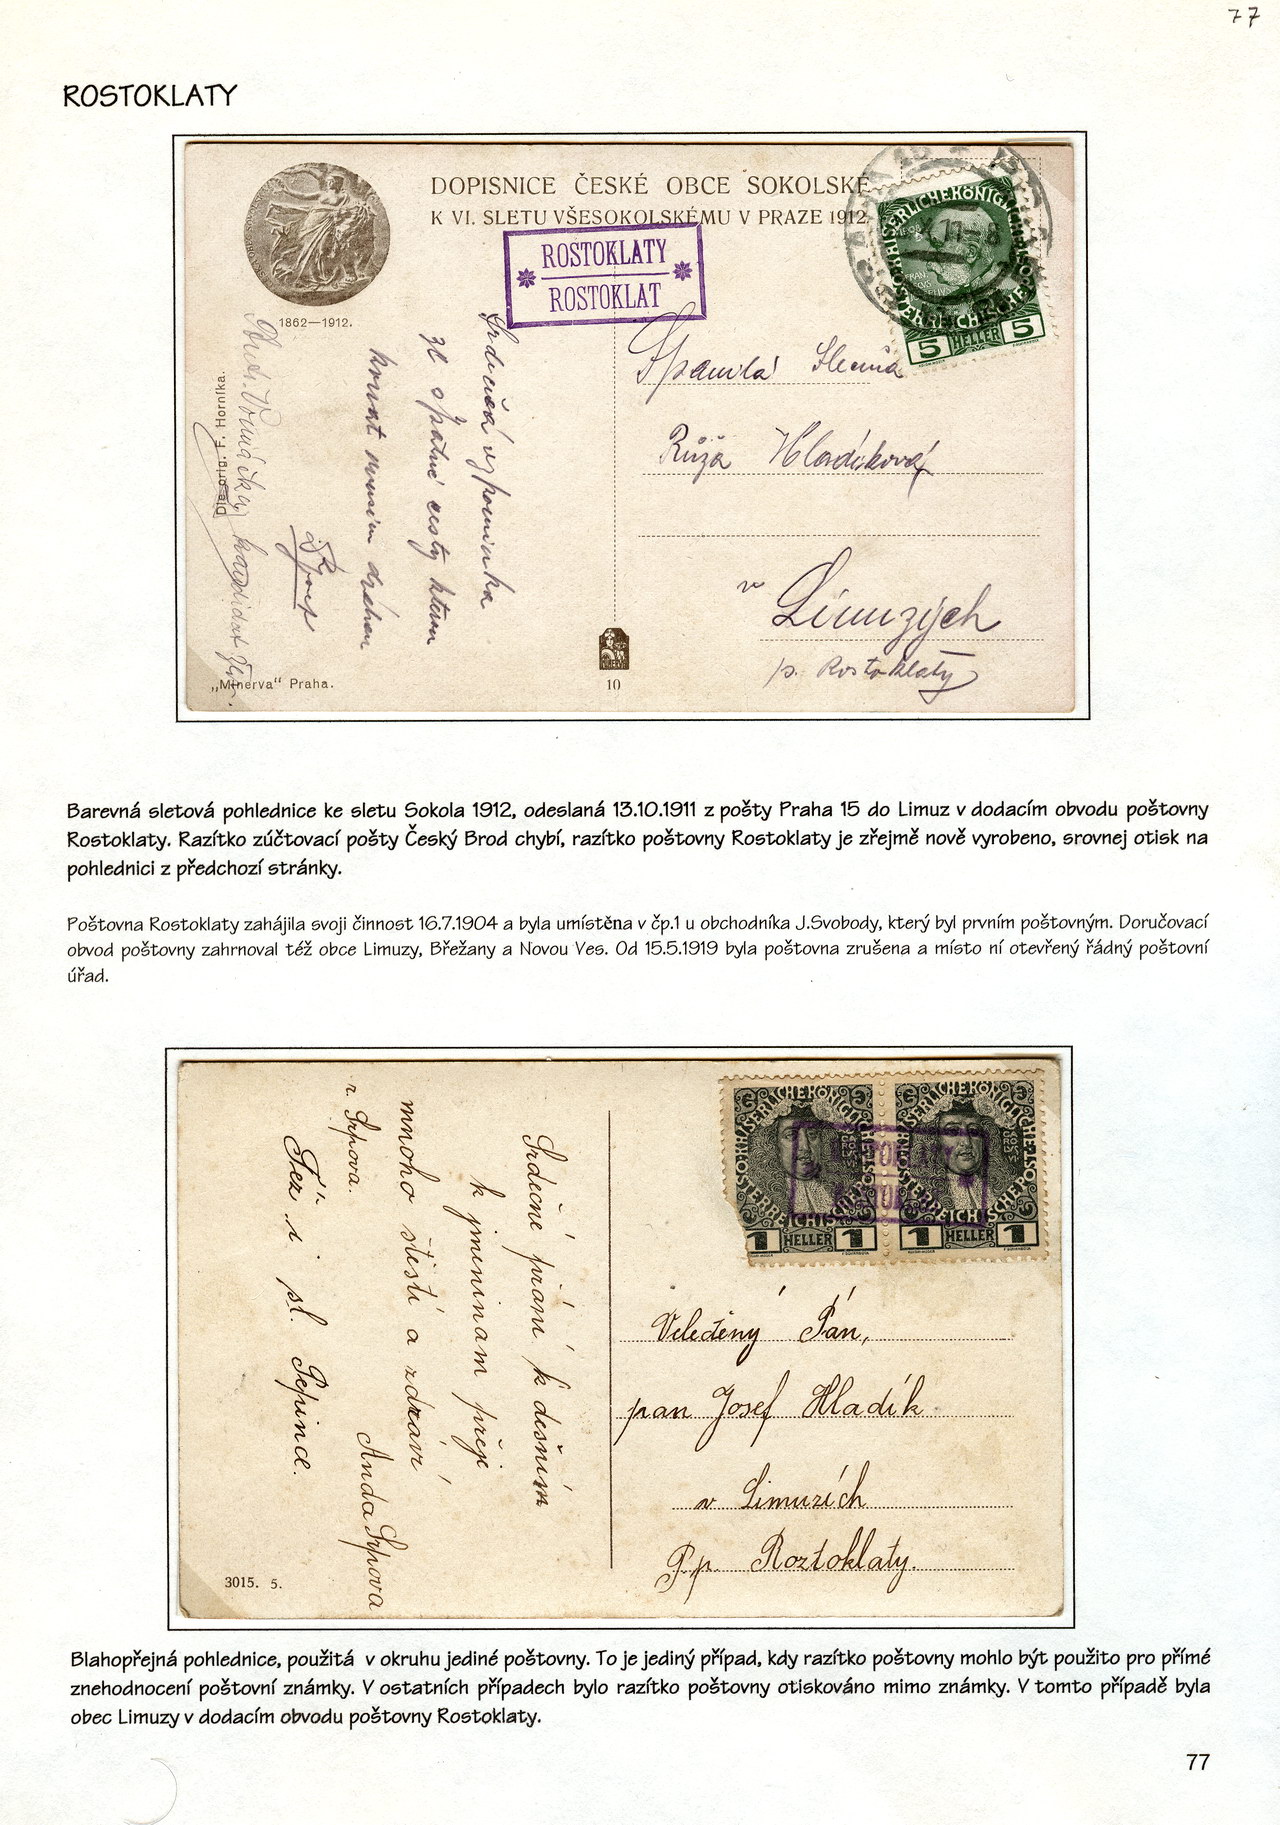 77
ROSTOKLATY
DOPISNICE ČESKÉ OBCE SOKOLSKÉ
K VI. SLETU VŠESOKOLSKÉMU V PRAZE 1912.
ROSTOKLATY
ROSTOKLAT
KAISERLICHE KÖNIGLICHE
5 HELLER 5
1862—1912.
Dle orig. F. Horníka.
„Minerva“ Praha.
10
Srdečná vzpomínka
ze špatné cesty kterou
konat musím dráhou
Josef
Spanilá Slečna
Růža Hladíková
v Limuzých
p. Rostoklaty
Barevná sletová pohlednice ke sletu Sokola 1912, odeslaná 13.10.1911 z pošty Praha 15 do Limuz v dodacím obvodu poštovny
Rostoklaty. Razítko zúčtovací pošty Český Brod chybí, razítko poštovny Rostoklaty je zřejmě nově vyrobeno, srovnej otisk na
pohlednici z předchozí stránky.
Poštovna Rostoklaty zahájila svoji činnost 16.7.1904 a byla umístěna v čp.1 u obchodníka J.Svobody, který byl prvním poštovným. Doručovací
obvod poštovny zahrnoval též obce Limuzy, Břežany a Novou Ves. Od 15.5.1919 byla poštovna zrušena a místo ní otevřený řádný poštovní
úřad.
1 HELLER 1
1 HELLER 1
Srdečné přání k dešním
k jmeninam přeje
mnoho štestí a zdraví
Anda Srpova
r. Srpova.
Též i sl. Pepince.
3015. 5.
Veleděný Pán,
pan Josef Hladík
v Limuzích
Pp. Roztoklaty.
Blahopřejná pohlednice, použitá v okruhu jediné poštovny. To je jediný případ, kdy razítko poštovny mohlo být použito pro přímé
znehodnocení poštovní známky. V ostatních případech bylo razítko poštovny otiskováno mimo známky. V tomto případě byla
obec Limuzy v dodacím obvodu poštovny Rostoklaty.
77